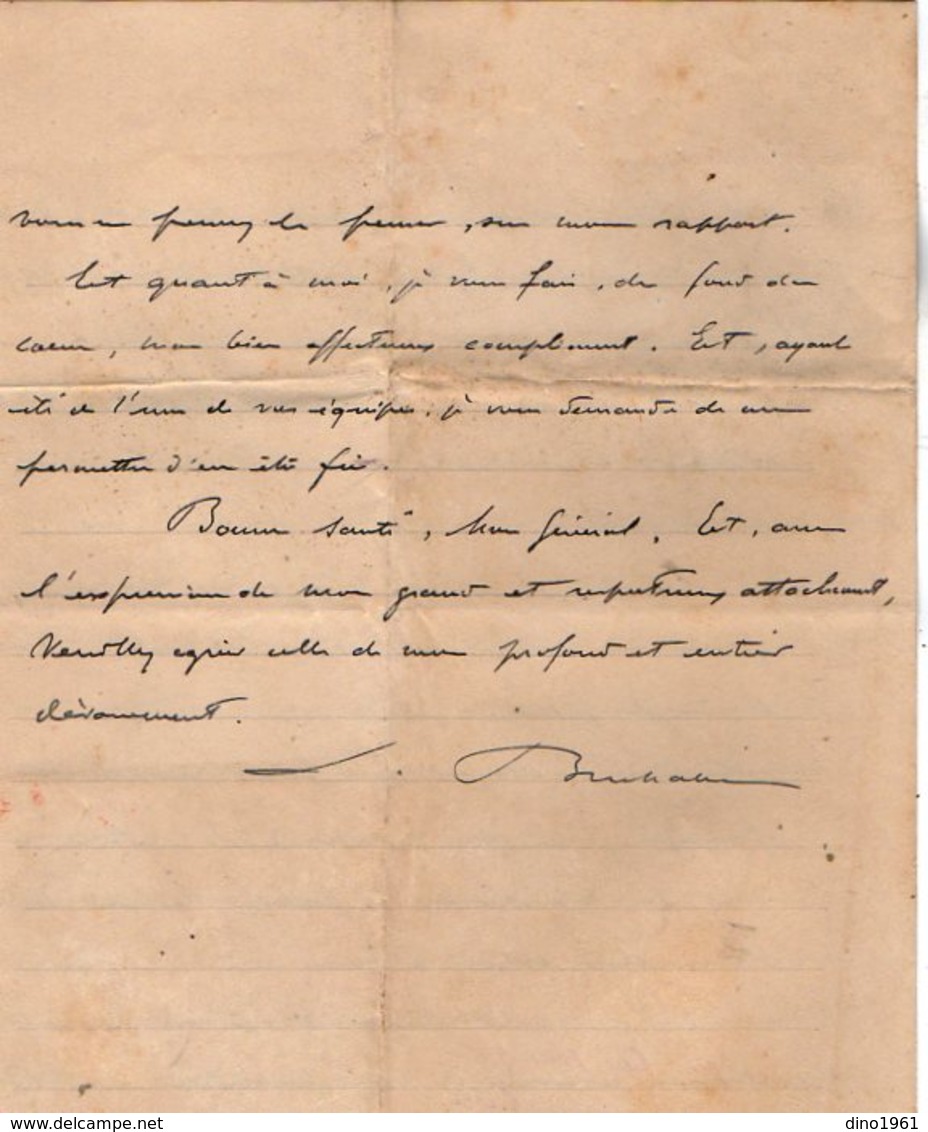 sur mon rapport.
Et quant à moi, je vous fais, du fond du
cœur, mon bien affectueux compliment. Et, ayant
été de l'une de vos équipes, je vous demande de me
permettre d'en être fier.
Bonne santé, Mon Général. Et, avec
l'expression de mon grand et respectueux attachement,
Veuillez agréer celle de mon profond et entier
dévouement.
dino1961